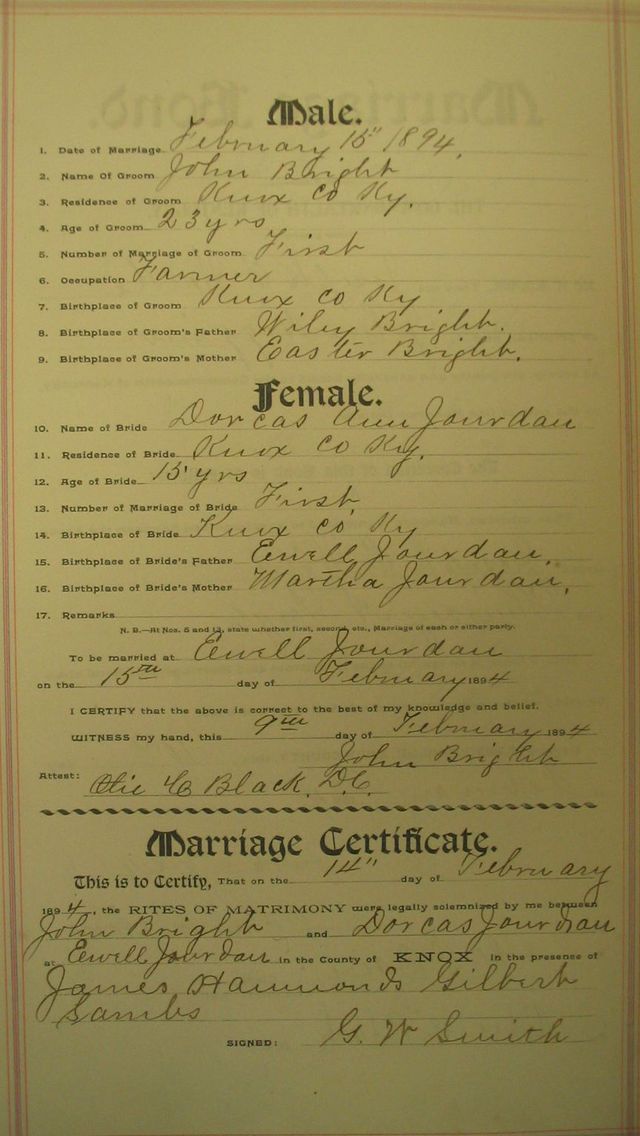 Male.
1. Date of Marriage February 15" 1894.
2. Name Of Groom John Bright
3. Residence of Groom Knox Co Ky.
4. Age of Groom 23 yrs
5. Number of Marriage of Groom First
6. Occupation Farmer
7. Birthplace of Groom Knox Co Ky
8. Birthplace of Groom's Father Wiley Bright.
9. Birthplace of Groom's Mother Easter Bright.
Female.
10. Name of Bride Dorcas Ann Jourdan
11. Residence of Bride Knox Co Ky.
12. Age of Bride 15 yrs
13. Number of Marriage of Bride First
14. Birthplace of Bride Knox Co Ky
15. Birthplace of Bride's Father Ewell Jourdan.
16. Birthplace of Bride's Mother Martha Jourdan.
17. Remarks
N. B.—At Nos. 5 and 13, state whether first, second, etc., Marriage of each or either party.
To be married at Ewell Jourdan
on the 15th day of February 1894
I CERTIFY that the above is correct to the best of my knowledge and belief.
WITNESS my hand, this 9th day of February 1894
John Bright
Attest: Black, D.C.
Marriage Certificate.
This is to Certify, That on the 14" day of February
1894, the RITES OF MATRIMONY were legally solemnized by me between
John Bright and Dorcas Jourdan
at Ewell Jourdan in the County of KNOX in the presence of
James Hammonds Gilbert
SIGNED: G. W Smith